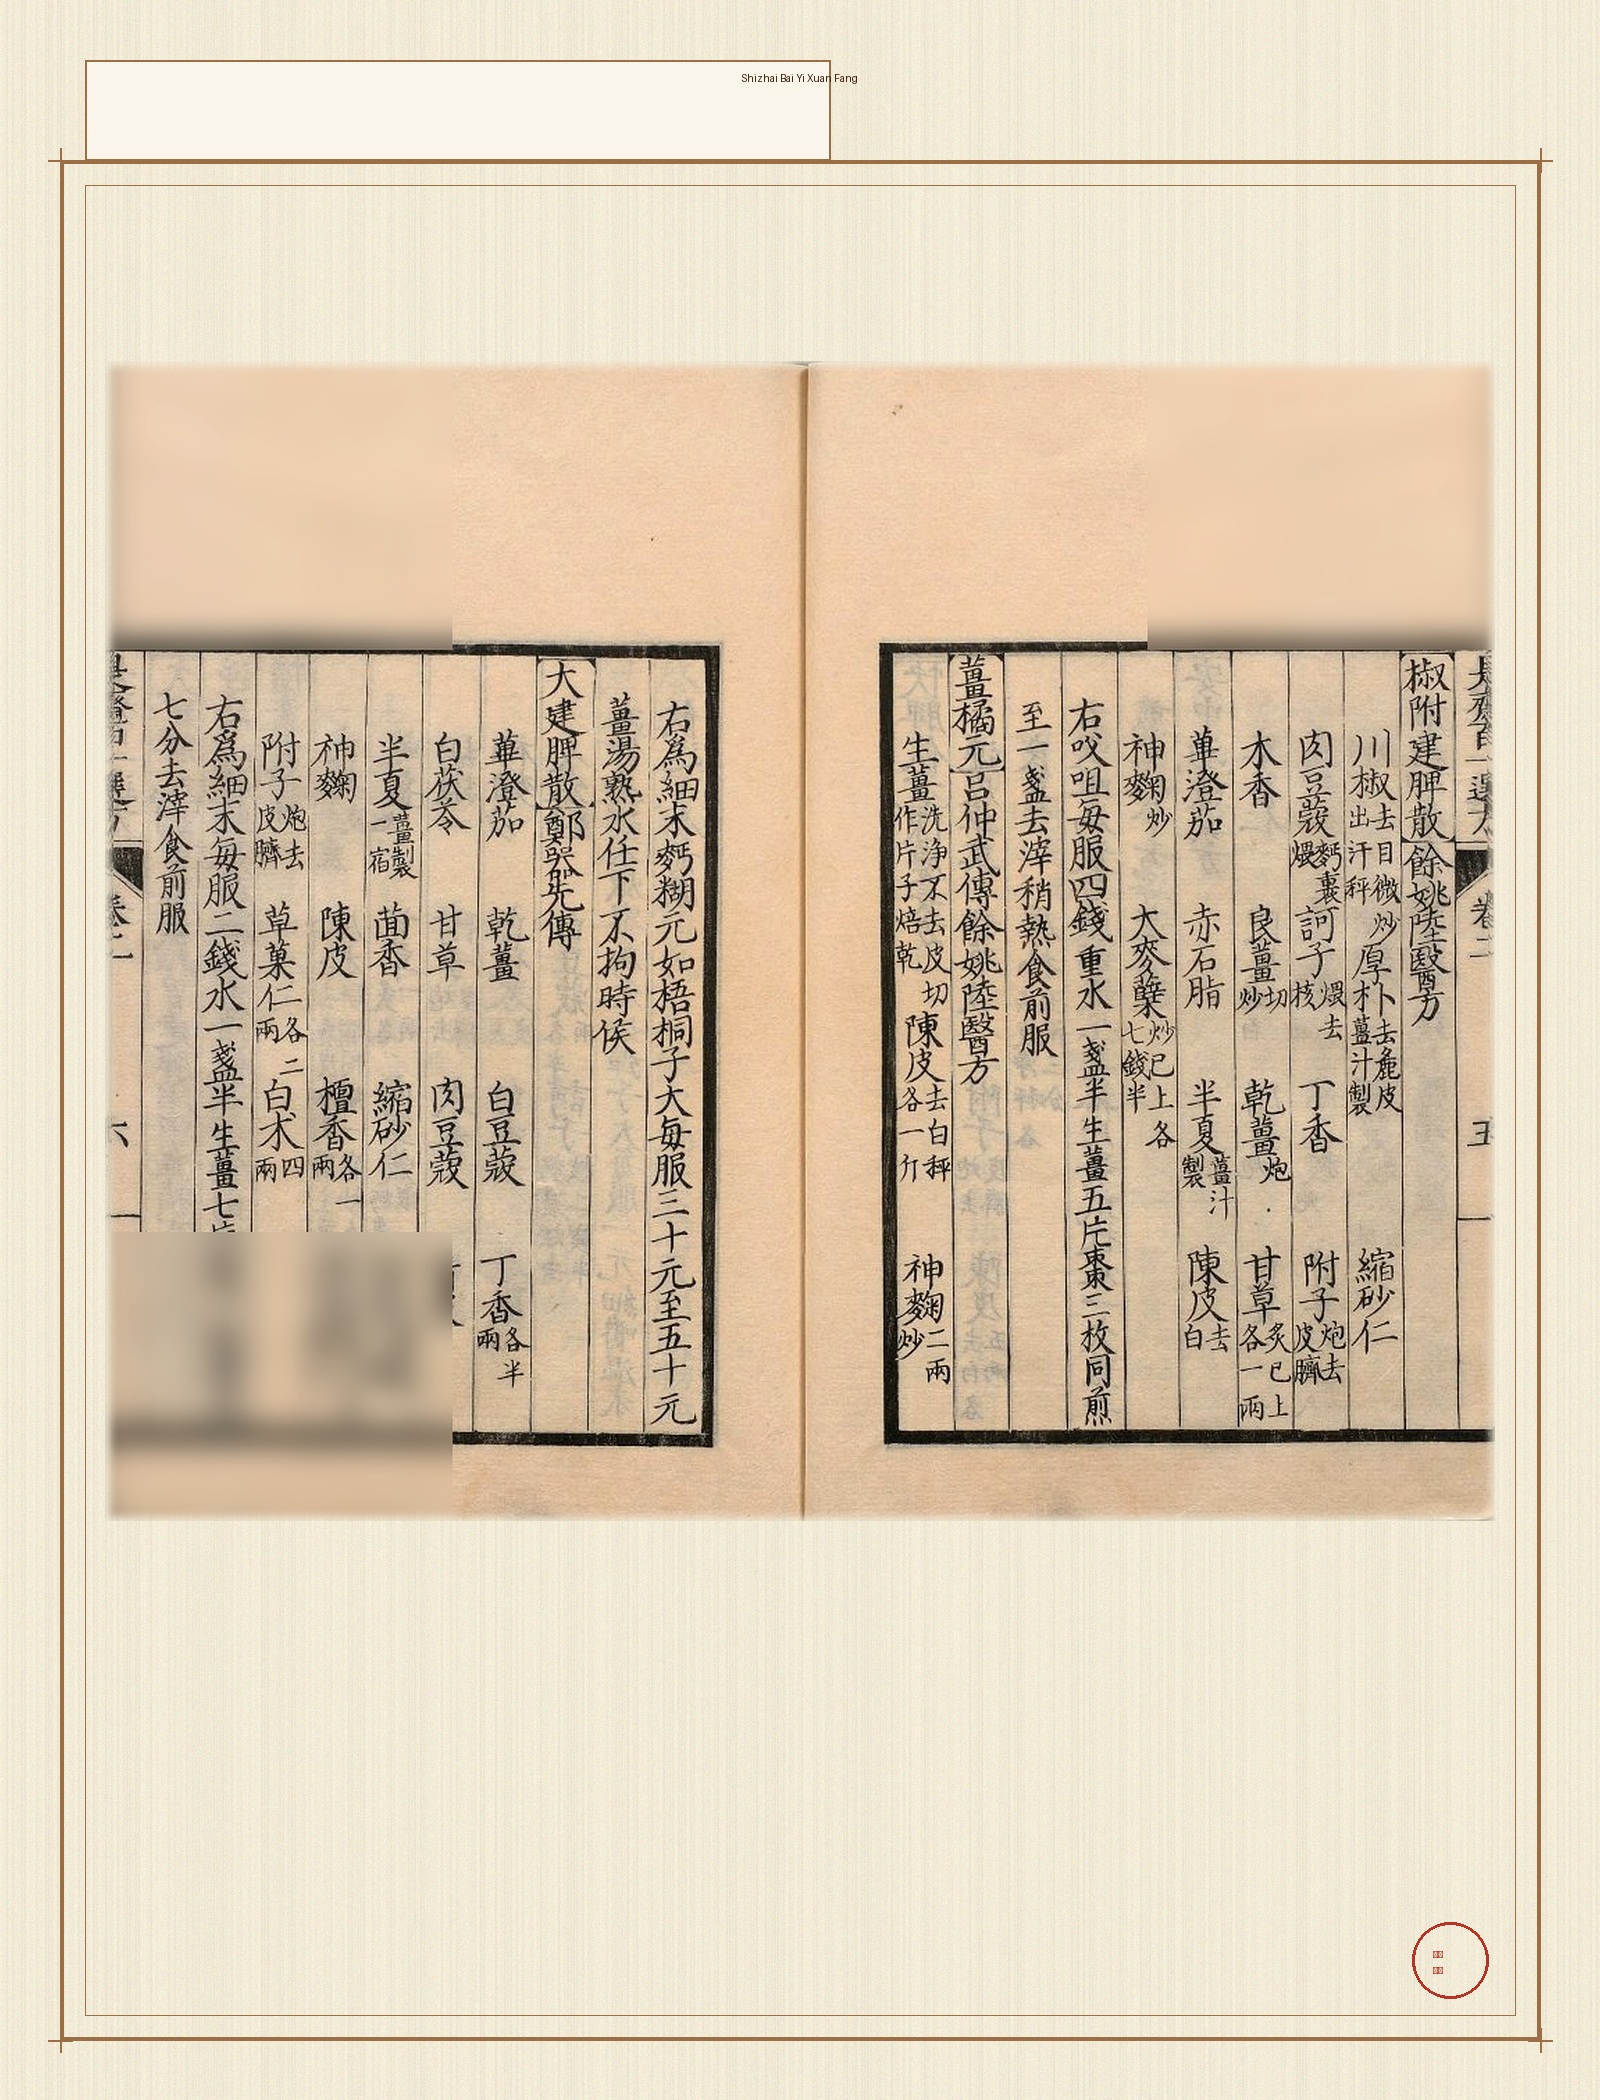 Shizhai Bai Yi Xuan Fang
椒附建脾散餘姚陸醫方
川椒去目微炒出汗秤厚朴去麁皮薑汁製縮砂仁
肉豆蔻麪裹煨訶子煨去核丁香附子炮去皮臍
木香良薑切炒乾薑炮甘草炙已上各一兩
蓽澄茄赤石脂半夏薑汁製陳皮去白
神麴炒大麥櫱炒已上各七錢半
右㕮咀每服四錢重水一盞半生薑五片棗三枚同煎
至一盞去滓稍熱食前服
薑橘元呂仲武傳餘姚陸醫方
生薑洗淨不去皮切作片子焙乾陳皮去白秤各一斤神麴二兩炒
右爲細末麪糊元如梧桐子大每服三十元至五十元
薑湯熟水任下不拘時候
大建脾散鄭器先傳
蓽澄茄乾薑白豆蔻丁香各半兩
白茯苓甘草肉豆蔻
半夏薑製一宿茴香縮砂仁
神麴陳皮檀香各一兩
附子炮去皮臍草菓仁各二兩白朮四兩
右爲細末每服二錢水一盞半生薑七
七分去滓食前服
卷二
六